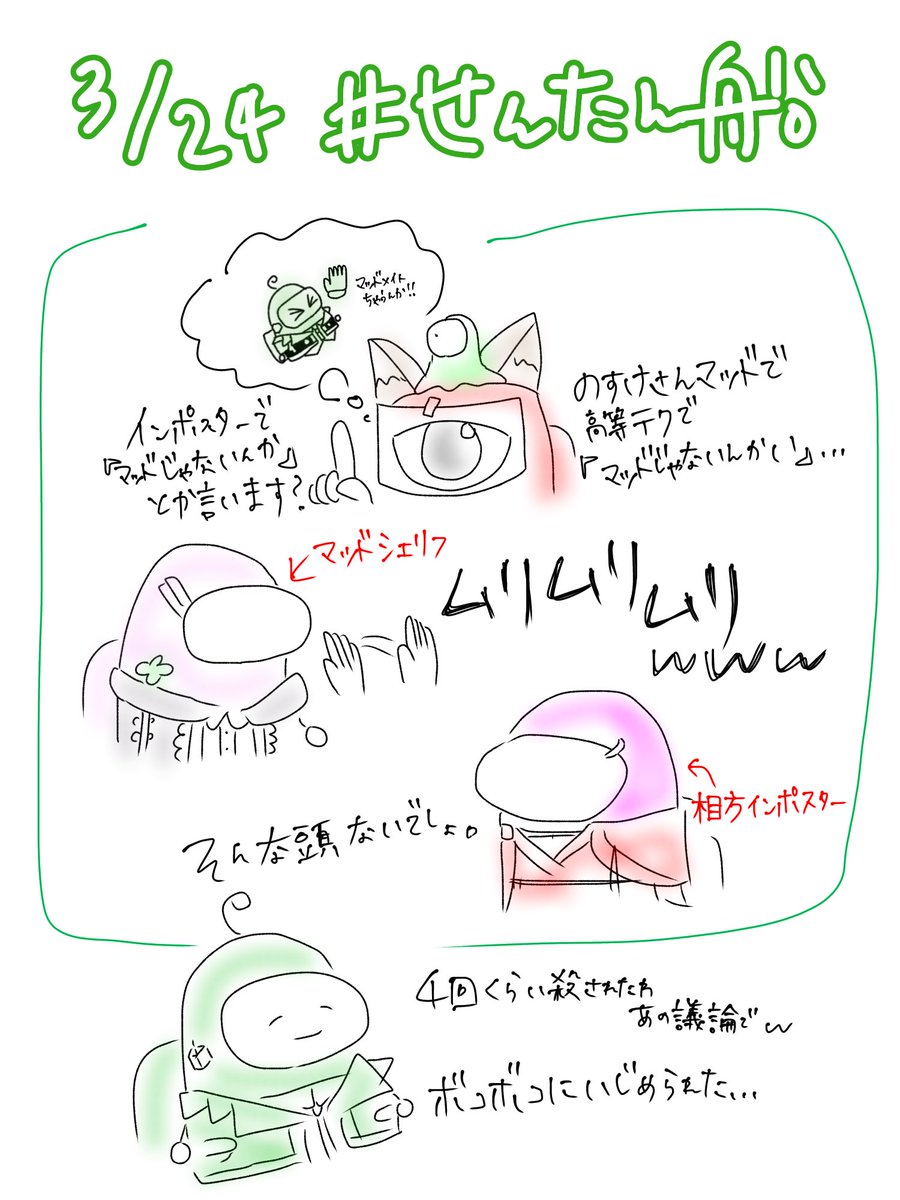 3/24 #せんたん船
マッドメイト
ちゃうんか!!
インポスターで
『マッドじゃないんか』
とか言います?
のすけさんマッドで
高等テクで
『マッドじゃないんかい』...
マッドシェリフ
ムリムリムリ
www
相方インポスター
そんな頭ないでしょ。
4回くらい殺されたわ
あの議論でw
ボコボコにいじめられた...